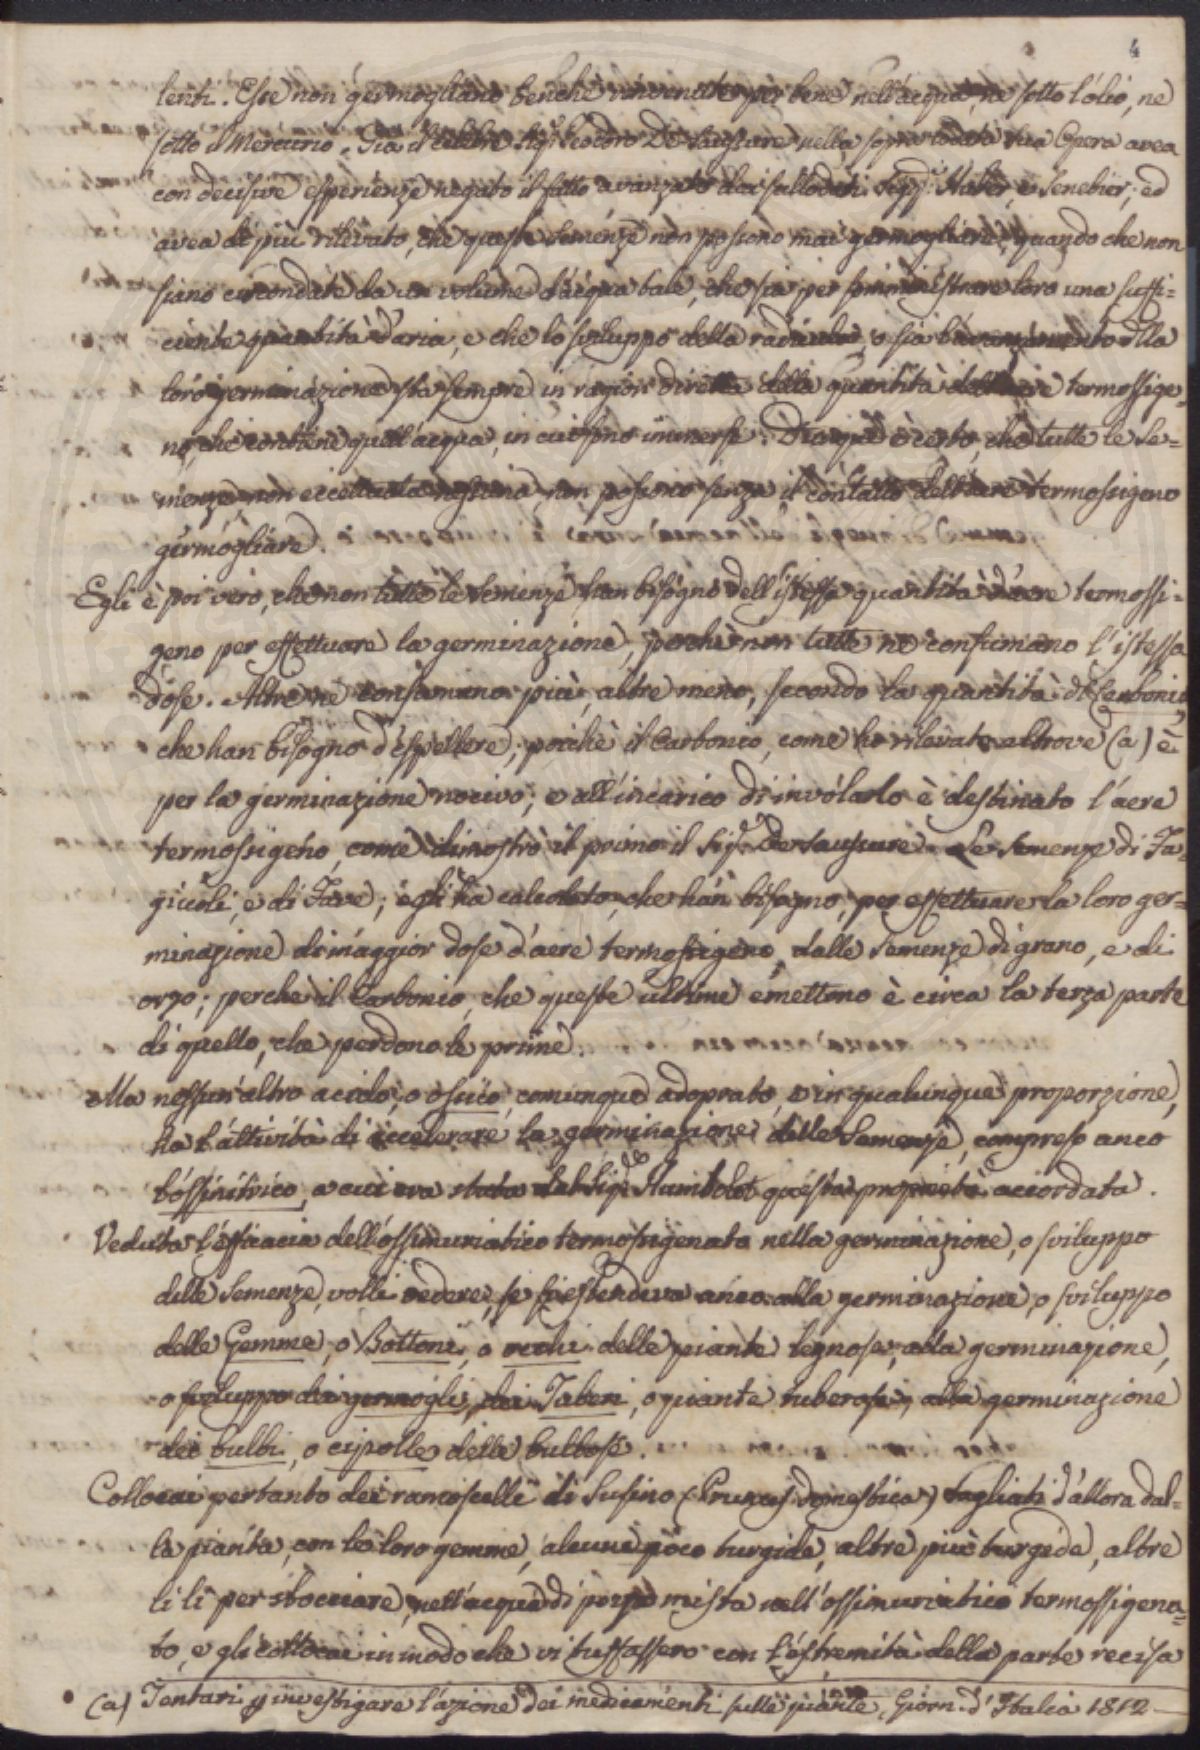 4
lenti. Esse non germogliano benchè rinvenute per bene nell'acqua, nè sotto l'olio, nè
sotto il Mercurio. Già il celebre Sig.r Teodoro De Saussure nella sopra lodata sua Opera avea
con decisive esperienze negato il fatto avanzato dai sullodati Sigg.i Huber, e Senebier; ed
avea di più rilevato, che queste Semenze non possono mai germogliare, quando che non
siano circondate da un volume d'acqua tale, che sia per somministrare loro una suffi=
ciente quantità d'aria, e che lo sviluppo della radicula, o sia l'avanzamento della
loro germinazione sta sempre in ragion diretta della quantità dell'aere termossige=
no, che contiene quell'acqua, in cui sono immerse. Dunque è certo, che tutte le Se=
menze non eccettuata nessuna, non possono senza il contatto dell'aere termossigeno
germogliare.
Egli è poi vero, che non tutte le Semenze han bisogno dell'istessa quantità d'aere termossi=
geno per effettuare la germinazione, perchè non tutte ne consumano l'istessa
dose. Altre ne consumano più, altre meno, secondo la quantità di Carbonio,
che han bisogno d'espellere; poichè il Carbonio, come ho rilevato altrove (a) è
per la germinazione nocivo; e all'incarico di involarlo è destinato l'aere
termossigeno, come dimostrò il primo il Sig.r De Saussure. Le Semenze di Fa=
giuoli, e di Fave; egli ha calcolato, che han bisogno, per effettuare la loro ger=
minazione di maggior dose d'aere termossigeno, dalle Semenze di grano, e di
orzo; perchè il Carbonio, che queste ultime emettono è circa la terza parte
di quello, che perdono le prime.
Ma nessun'altro acido, o ossico, comunque adoprato, e in qualunque proporzione,
ha l'attività di accelerare la germinazione delle Semenze, compreso anco
l'ossinitrico, a cui era stata dal Sig.r de Humboldt questa proprietà accordata.
Veduta l'efficacia dell'ossimuriatico termossigenato nella germinazione, o sviluppo
delle Semenze, volli vedere, se si estendeva anco alla germinazione, o sviluppo
delle Gemme, o Bottoni, o occhi delle piante legnose; alla germinazione,
o sviluppo dei germogli, dei Tuberi, o piante tuberose; alla germinazione
dei bulbi, o cipolle delle bulbose.
Collocai pertanto dei ramoscelli di Susino (Prunus domestica) tagliati d'allora dal=
la pianta, con le loro gemme, alcune poco turgide, altre più turgide, altre
lì lì per sbocciare, nell'acqua di pozzo mista coll'ossimuriatico termossigena=
to, e gli collocai in modo che vi tuffassero con l'estremità della parte recisa
(a) Tentari p investigare l'azione dei medicamenti sulle piante, Giorn. d'Italia 1812